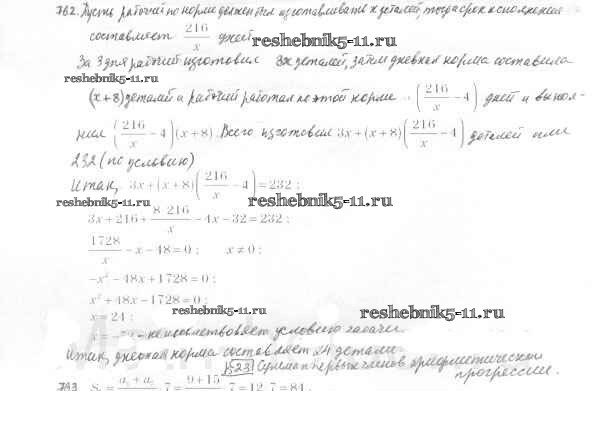 762. Пусть рабочий по норме должен был изготавливать x деталей, тогда срок исполнения
составляет 216/x дней
reshebnik5-11.ru
За 3 дня рабочий изготовил 3x деталей, затем дневная норма составила
reshebnik5-11.ru
(x+8) деталей и рабочий работал по этой норме (216/x − 4) дней и выпол-
нил (216/x − 4)(x+8). Всего изготовил 3x+(x+8)(216/x − 4) деталей или
232 (по условию)
Итак, 3x+(x+8)(216/x − 4)=232;
reshebnik5-11.ru reshebnik5-11.ru
3x+216+8·216/x −4x−32=232;
1728/x −x−48=0; x≠0;
−x²−48x+1728=0;
x²+48x−1728=0;
x=24; reshebnik5-11.ru reshebnik5-11.ru
x= - не удовлетворяет условию задачи.
Итак, дневная норма составляет 24 детали.
§23 Сумма n первых членов арифметической
прогрессии.
793 S = a + a 7 = 9+15 7=12·7=84.